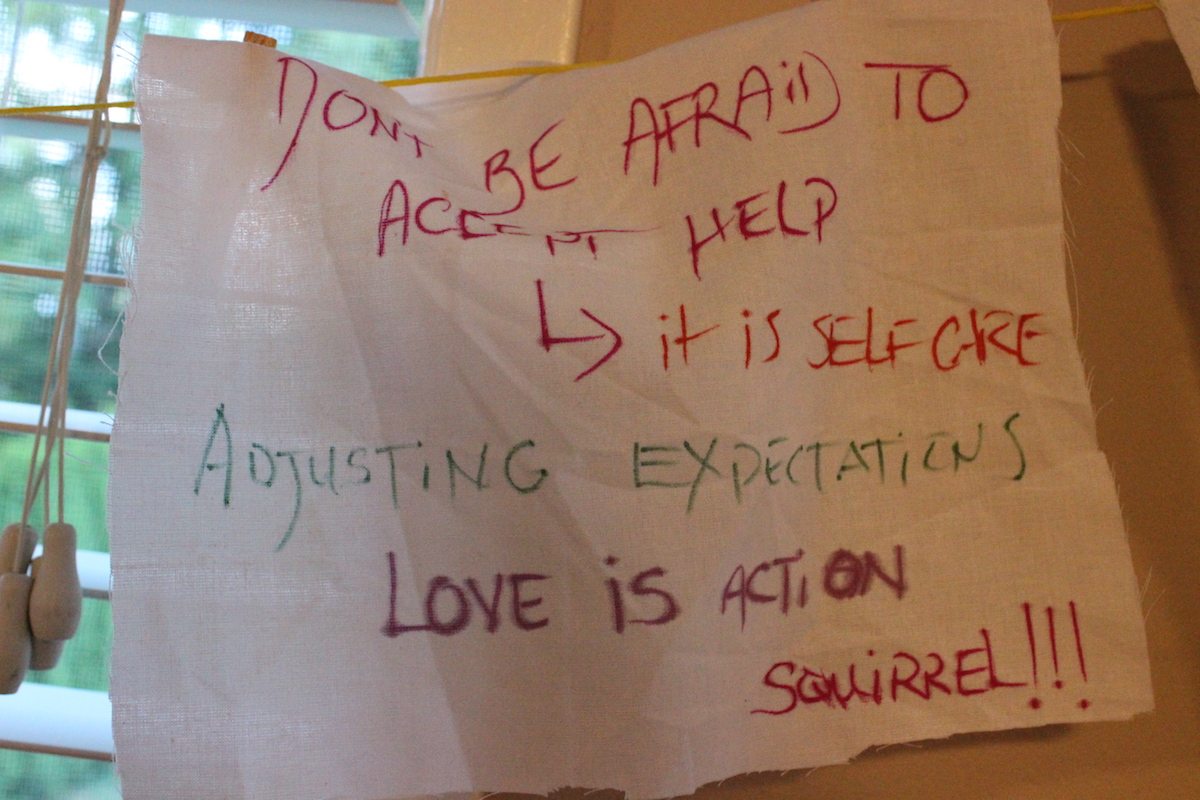 DONT BE AFRAiD TO
ACCEPT HELP
it iS SELF CARE
ADJUSTiNG EXPECTATiONS
LOVE iS ACTiON
SQUiRREL!!!